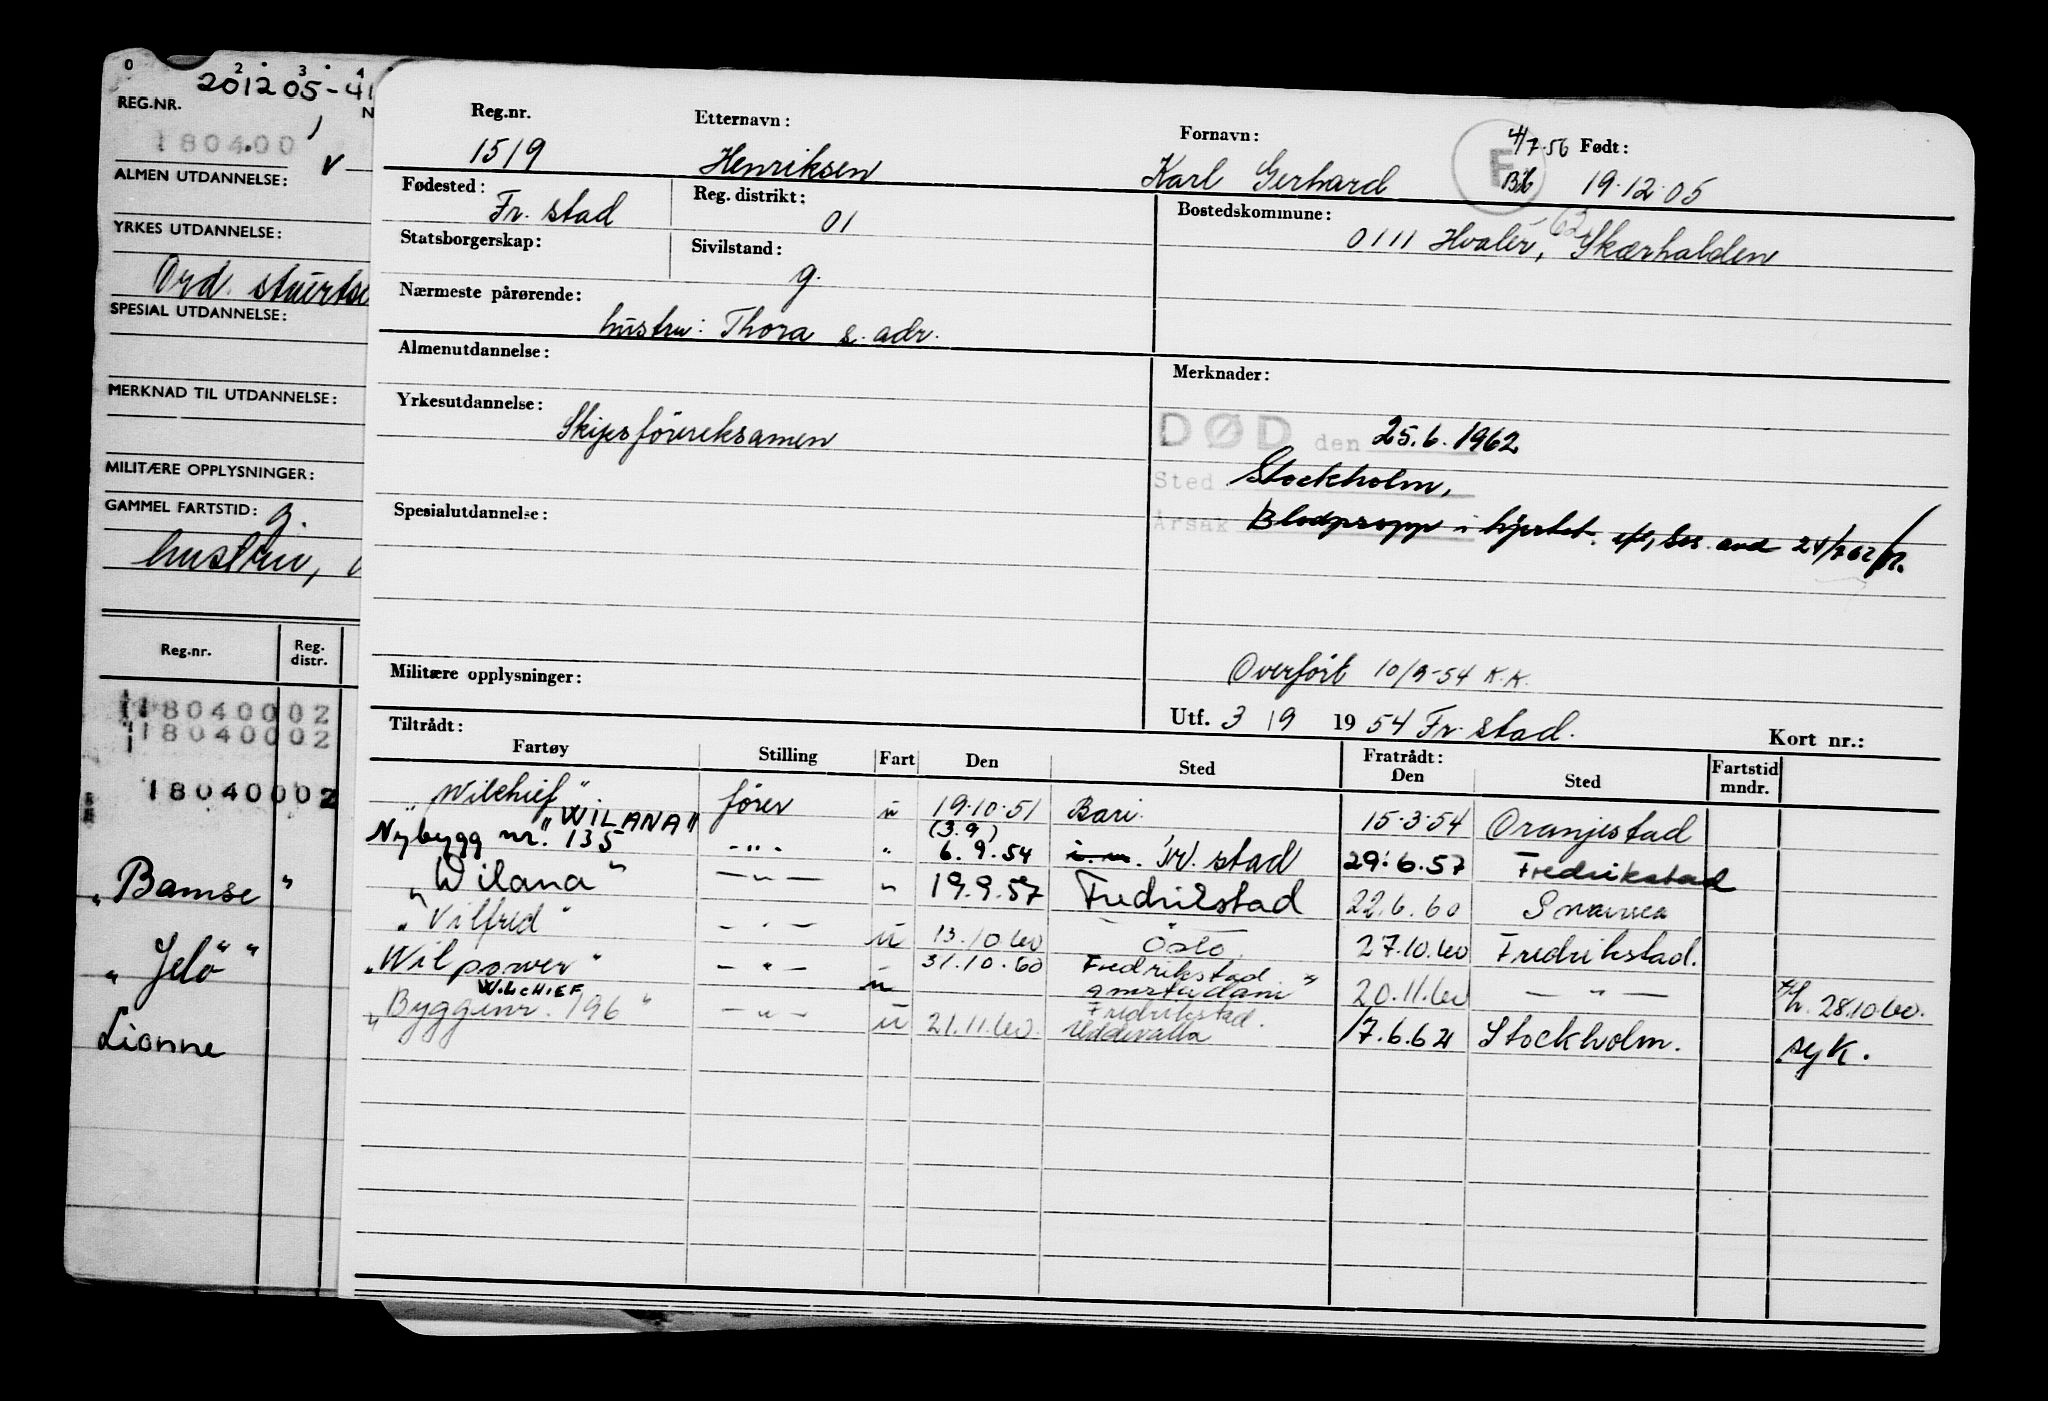 0 2 3 4
201205-41
REG.NR. N
180400
ALMEN UTDANNELSE: v
YRKES UTDANNELSE:
Ord. stuertsk
SPESIAL UTDANNELSE:
MERKNAD TIL UTDANNELSE:
MILITÆRE OPPLYSNINGER:
GAMMEL FARTSTID: g.
hustru,
Reg.nr. Reg. distr.
18040002
18040002
18040002
"Bamse"
"Jelö"
Lionne
Reg.nr. Etternavn: Fornavn: F 4/7-56 Født:
1519 Henriksen Karl Gerhard 19.12.05
Fødested: Reg. distrikt: Bostedskommune:
Fr. stad 01 0111 Hvaler, -63 Skærhalden
Statsborgerskap: Sivilstand:
g.
Nærmeste pårørende:
hustru: Thora s. adr.
Almenutdannelse: Merknader:
Yrkesutdannelse:
Skipsførereksamen
DØD den 25.6.1962
Sted Stockholm,
Årsak Blodpropp i hjertet.
Spesialutdannelse:
Militære opplysninger:
Overført 10/9-54 K.K.
Utf. 3/9 1954 Fr. stad. Kort nr.:
Tiltrådt: Fratrådt:
Fartøy Stilling Fart Den Sted Den Sted Fartstid mndr.
"Wilchief" fører u 19.10.51 Bari 15.3.54 Oranjestad
"WILANA" (3.9)
Nybygg nr. 135 -"- " 6.9.54 Fr. stad 29.6.57 Fredrikstad
"Wilana" -"- " 19.9.57 Fredrikstad 22.6.60
"Vilfred" -"- u 13.10.60 Oslo 27.10.60 Fredrikstad.
"Wilpower" -"- 31.10.60 Fredrikstad
u Amsterdam 20.11.60 -"- 28.10.60.
WILCHIEF Fredrikstad.
"Byggenr. 196" -"- u 21.11.60. Uddevalla 17.6.62 Stockholm. syk.